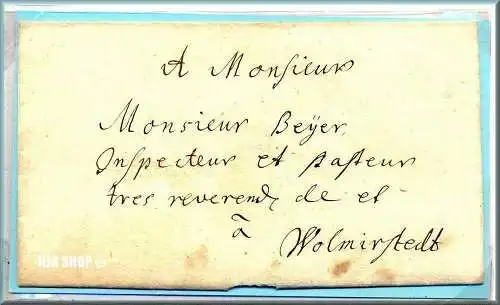 A Monsieur
Monsieur Beÿer
Inspecteur et Pasteur
tres reverend, de et
à
Wolmirstedt
HJK SHOP